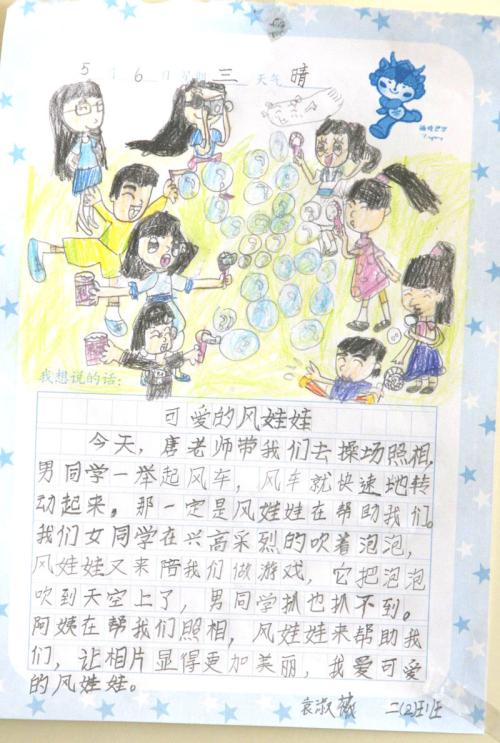 5月6日星期三 天气晴
我想说的话:
可爱的风娃娃
今天，唐老师带我们去操场照相，
男同学一举起风车，风车就快速地转
动起来。那一定是风娃娃在帮助我们。
我们女同学在兴高采烈的吹着泡泡，
风娃娃又来陪我们做游戏，它把泡泡
吹到天空上了，男同学扒也扒不到。
阿姨在帮我们照相，风娃娃来帮助我
们，让相片显得更加美丽，我爱可爱
的风娃娃。
袁淑薇 二(2)班